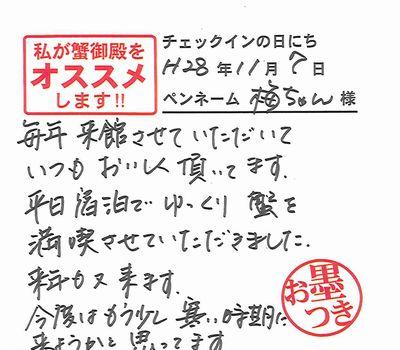 私が蟹御殿を
オススメ
します!!
チェックインの日にち
H28年11月7日
ペンネーム 梅ちゃん 様
毎年 来館させていただいて
いつも おいしく 頂いてます.
平日 宿泊で ゆっくり 蟹を
満喫させていただきました.
来年も又 来ます.
今度はもう少し 寒い時期に
来ようかと 思ってます
お墨つき